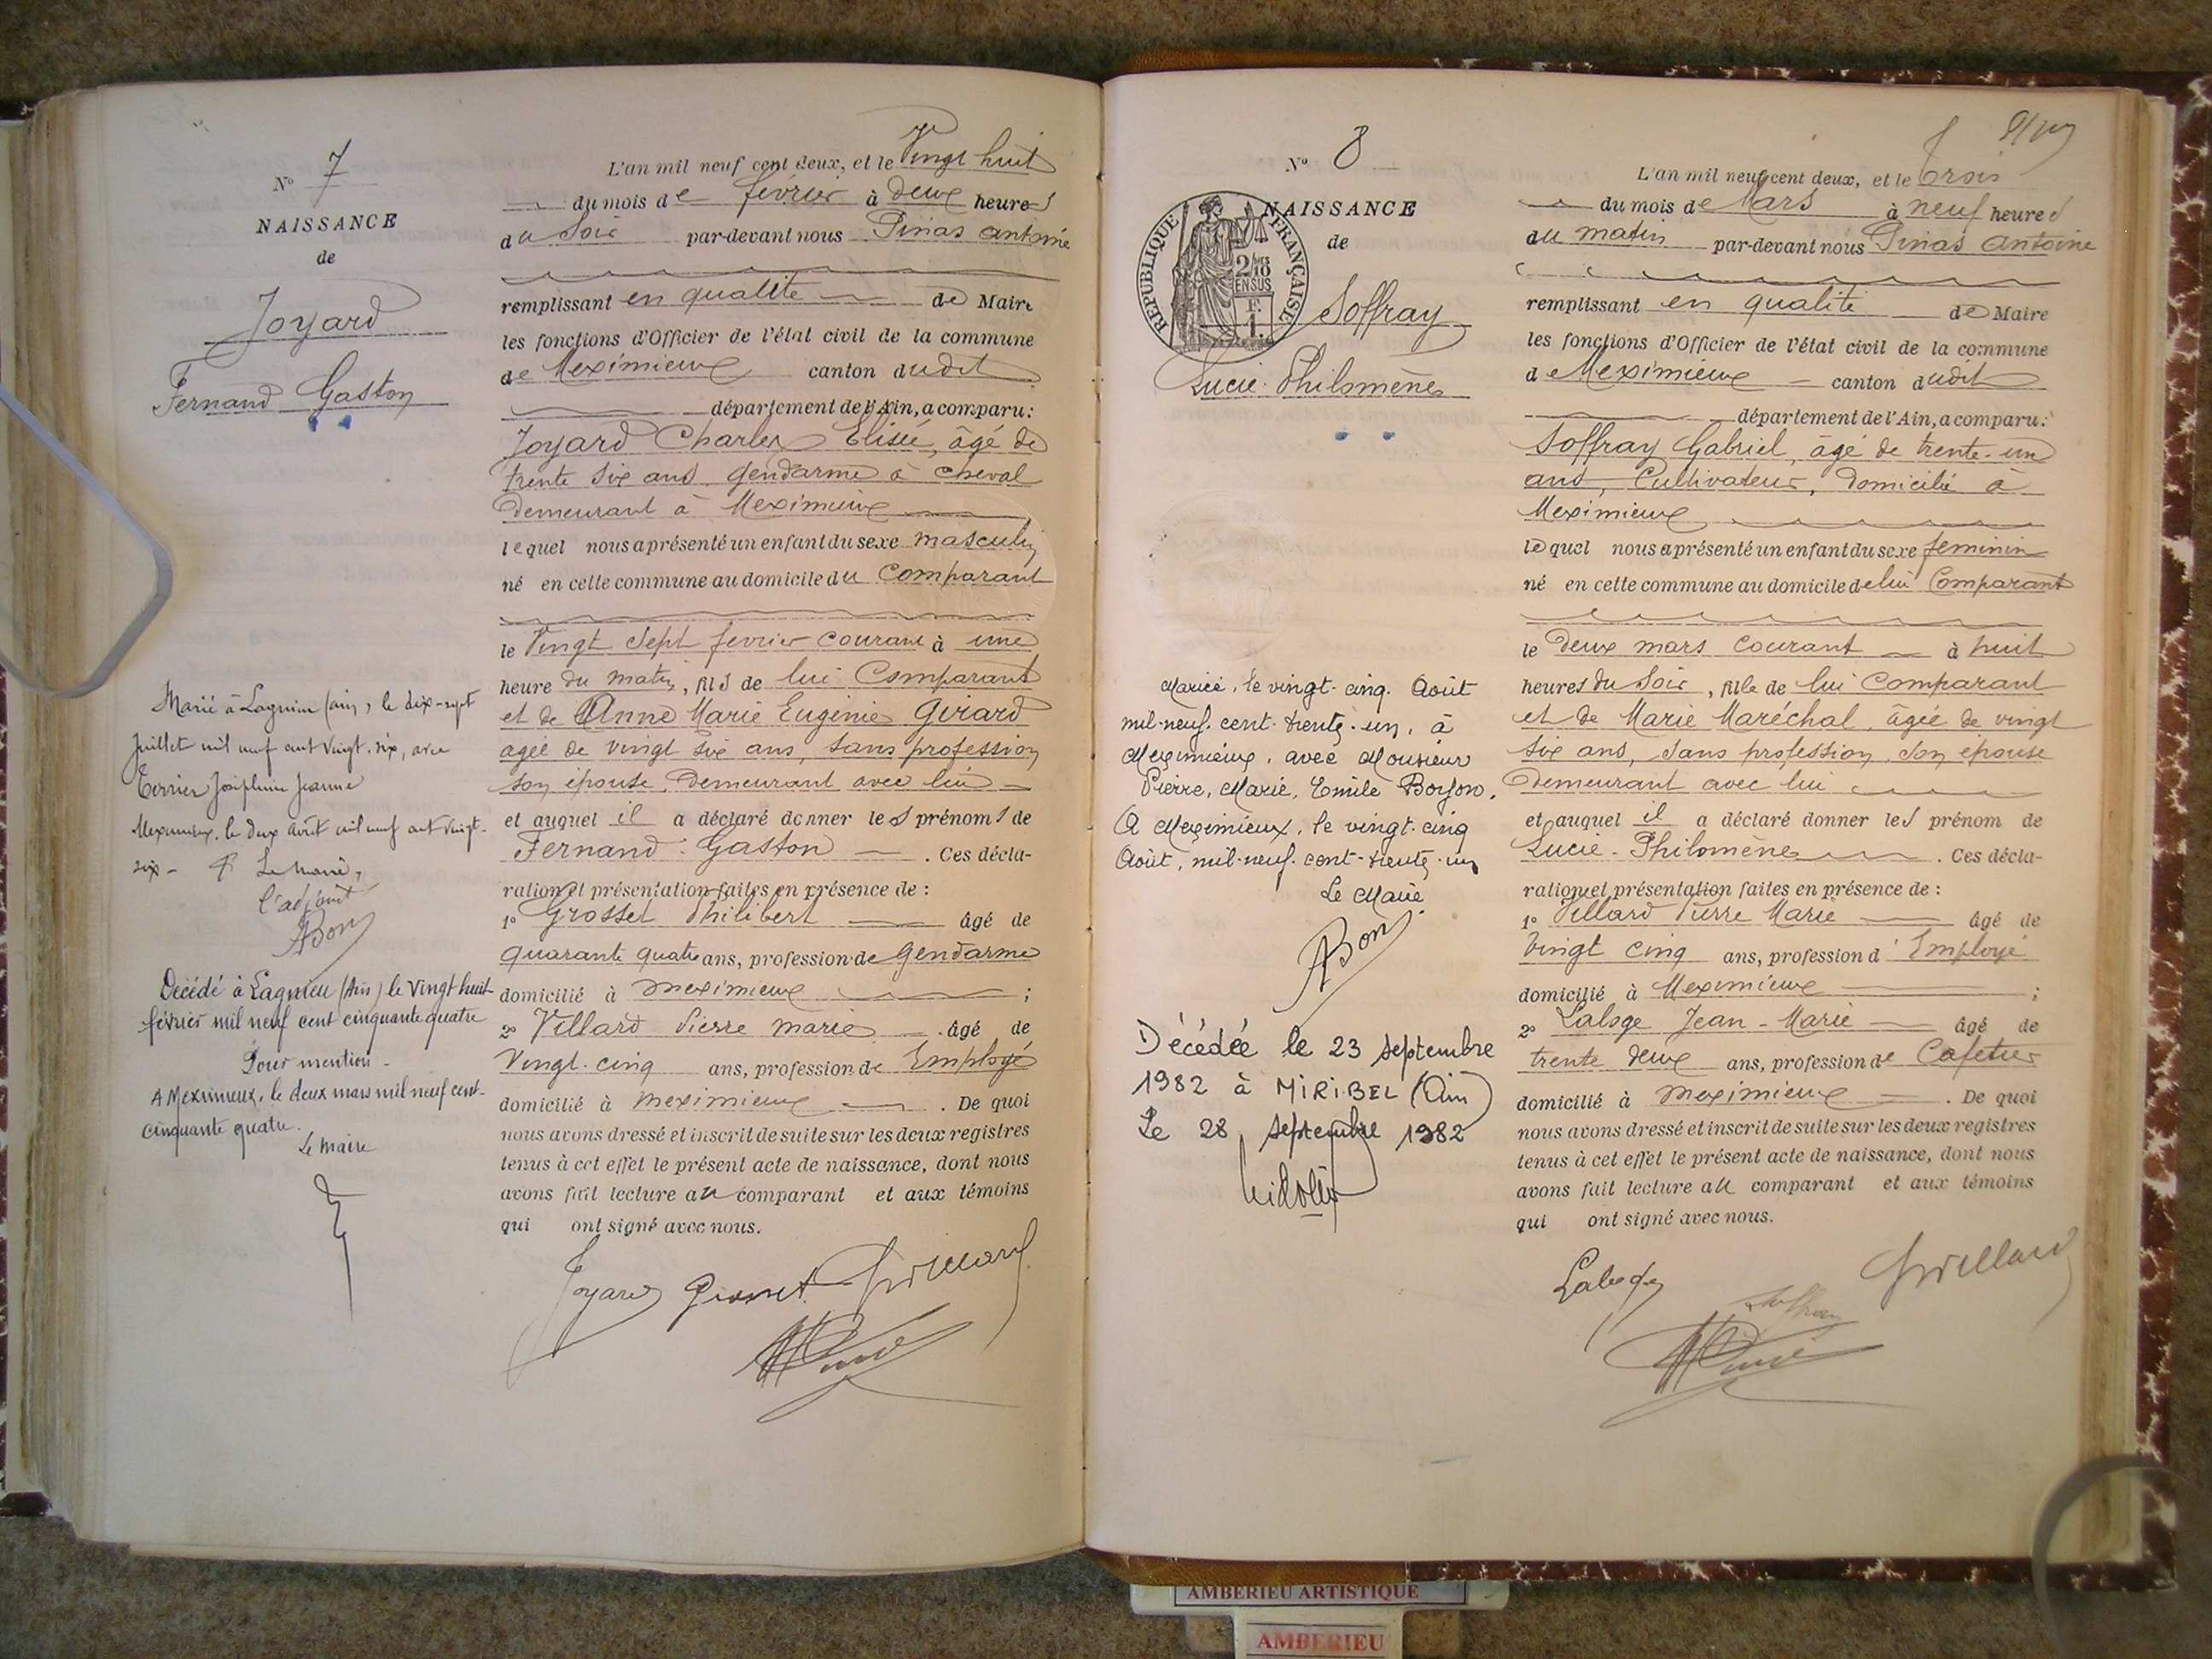 N° 7
NAISSANCE
de
Joyard
Fernand Gaston
Marié à Lagnieu (ain), le dix-sept
juillet mil neuf cent vingt-six, avec
Terrier Joséphine Jeanne
Meximieux, le deux août mil neuf cent vingt-
six - Le Maire,
l'adjoint
ABon
Décédé à Lagnieu (Ain) le vingt huit
février mil neuf cent cinquante quatre
Pour mention -
A Meximieux, le deux mars mil neuf cent-
cinquante quatre.
Le Maire
L'an mil neuf cent deux, et le Vingt huit
du mois de février à deux heures
du Soir par-devant nous Pinas antoine
remplissant en qualité de Maire
les fonctions d'Officier de l'état civil de la commune
de Meximieux canton dudit
département de l'Ain, a comparu:
Joyard Charles Elisée, âgé de
trente six ans gendarme à cheval
demeurant à Meximieux
lequel nous a présenté un enfant du sexe masculin
né en cette commune au domicile du Comparant
le Vingt Sept fevrier courant à une
heure du matin, fils de lui Comparant
et de Anne Marie Eugénie Girard
agée de vingt six ans, sans profession
son épouse, demeurant avec lui
et auquel il a déclaré donner les prénoms de
Fernand Gaston . Ces décla-
ration et présentation faites en présence de :
1° Grosset Philibert âgé de
quarante quatre ans, profession de Gendarme
domicilié à meximieux ;
2° Villard Pierre marie âgé de
Vingt-cinq ans, profession de Employé
domicilié à meximieux . De quoi
nous avons dressé et inscrit de suite sur les deux registres
tenus à cet effet le présent acte de naissance, dont nous
avons fait lecture au comparant et aux témoins
qui ont signé avec nous.
Joyard Grosset Villard
N° 8
NAISSANCE
de
REPUBLIQUE FRANÇAISE
2/10 EN SUS
F. 1
Soffray
Lucie Philomène
Mariée, le vingt-cinq Août
mil-neuf-cent-trente-un, à
Meximieux, avec Monsieur
Pierre, Marie, Emile Boyson.
A Meximieux, le vingt-cinq
Août, mil-neuf-cent-trente-un
Le Maire.
ABon
Décédée le 23 septembre
1982 à MIRIBEL (Ain)
Le 28 septembre 1982
L'an mil neuf cent deux, et le Trois
du mois de Mars à neuf heures
du matin par-devant nous Pinas Antoine
remplissant en qualité de Maire
les fonctions d'Officier de l'état civil de la commune
de Meximieux canton dudit
département de l'Ain, a comparu:
Soffray Gabriel, âgé de trente-un
ans, Cultivateur, domicilié à
Meximieux
lequel nous a présenté un enfant du sexe feminin
né en cette commune au domicile de lui Comparant
le Deux mars courant à huit
heures du Soir, fille de lui Comparant
et de Marie Maréchal, âgée de vingt
six ans, sans profession, son épouse
demeurant avec lui
et auquel il a déclaré donner les prénom de
Lucie-Philomène . Ces décla-
ration et présentation faites en présence de :
1° Villard Pierre Marie âgé de
Vingt cinq ans, profession d'Employé
domicilié à Meximieux ;
2° Laloge Jean-Marie âgé de
trente deux ans, profession de Cafetier
domicilié à meximieux . De quoi
nous avons dressé et inscrit de suite sur les deux registres
tenus à cet effet le présent acte de naissance, dont nous
avons fait lecture au comparant et aux témoins
qui ont signé avec nous.
Laloge Soffray Villard
AMBERIEU ARTISTIQUE
AMBERIEU